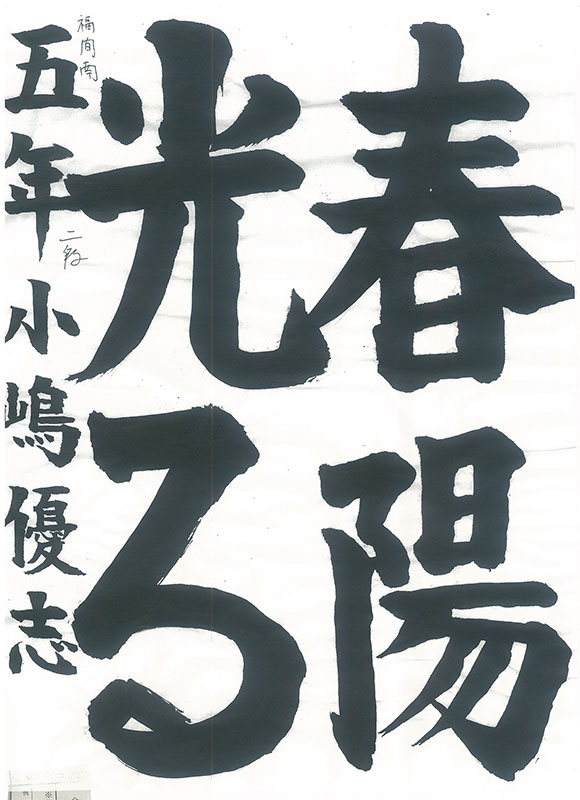 春陽
光る
福間南
五年小嶋優志
二段